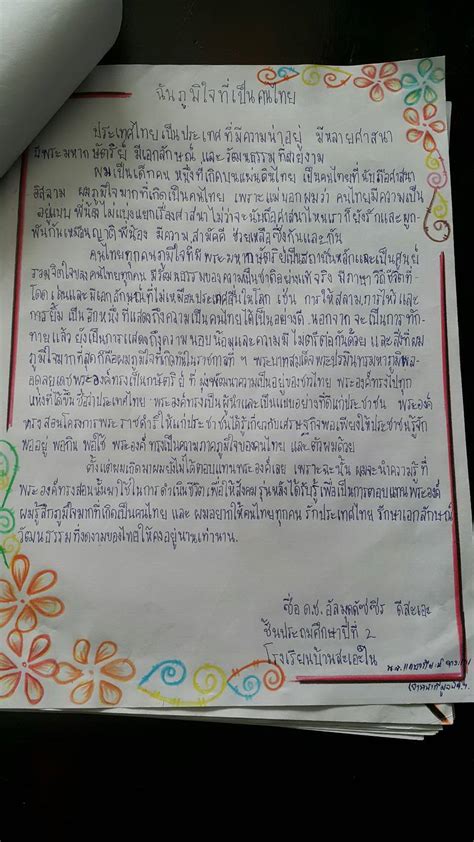 ฉันภูมิใจที่เป็นคนไทย
ประเทศไทยเป็นประเทศที่มีความน่าอยู่ มีหลายศาสนา
มีพระมหากษัตริย์ มีเอกลักษณ์ และวัฒนธรรมที่สวยงาม
ผมเป็นเด็กคนหนึ่งที่เกิดบนแผ่นดินไทย เป็นคนไทยที่นับถือศาสนา
อิสลาม ผมภูมิใจมากที่เกิดเป็นคนไทย เพราะแม่บอกผมว่า คนไทยมีความเป็น
อยู่แบบพี่น้อง ไม่แบ่งแยกเรื่องศาสนา ไม่ว่าจะนับถือศาสนาไหนเราก็ยังรักและผูก
พันกันเหมือนญาติพี่น้อง มีความสามัคคี ช่วยเหลือซึ่งกันและกัน
คนไทยทุกคนภูมิใจที่มีพระมหากษัตริย์เป็นสถาบันหลักและเป็นศูนย์
รวมจิตใจของคนไทยทุกคน มีวัฒนธรรมของความเป็นชาติอย่างแท้จริง มีภาษา วิถีชีวิตที่
โดดเด่นและมีเอกลักษณ์ที่ไม่เหมือนประเทศอื่นในโลก เช่น การให้สลาม การไหว้และ
การยิ้ม เป็นอีกหนึ่งที่แสดงถึงความเป็นคนไทยได้เป็นอย่างดี นอกจากจะเป็นการทัก
ทายแล้ว ยังเป็นการแสดงถึงความนอบน้อมและความมีไมตรีต่อกันด้วย และสิ่งที่ผม
ภูมิใจมากที่สุดก็คือผมภูมิใจที่เกิดในราชการที่ ๙ พระบาทสมเด็จพระปรมินทรมหาภูมิพล
อดุลยเดชพระองค์ทรงเป็นกษัตริย์ที่มุ่งพัฒนาความเป็นอยู่ของชาวไทย พระองค์ทรงไปทุก
แห่งที่ได้ขึ้นชื่อว่าประเทศไทย พระองค์ทรงเป็นผู้นำและเป็นแบบอย่างที่ดีแก่ประชาชน พระองค์
ทรงสอนโครงการพระราชดำริให้แก่ประชาชนได้รู้เกี่ยวกับเศรษฐกิจพอเพียงให้ประชาชนรู้จัก
พออยู่ พอกิน พอใช้ พระองค์ทรงเป็นความภาคภูมิใจของคนไทย และตัวผมด้วย
ตั้งแต่ผมเกิดมาผมยังไม่ได้ตอบแทนพระองค์เลย เพราะฉะนั้น ผมจะนำความรู้ที่
พระองค์ทรงสอนนั้นมาใช้ในการดำเนินชีวิต เพื่อให้สังคมรุ่นหลังได้รับรู้ เพื่อเป็นการตอบแทนพระองค์
ผมรู้สึกภูมิใจมากที่เกิดเป็นคนไทย และผมอยากให้คนไทยทุกคน รักประเทศไทย รักษาเอกลักษณ์
วัฒนธรรมที่งดงามของไทยให้คงอยู่นานเท่านาน.
ชื่อ ด.ช. อัลมุดดัซซิร ดีสะเอะ
ชั้นประถมศึกษาปีที่ 2
โรงเรียนบ้านสะเอะใน